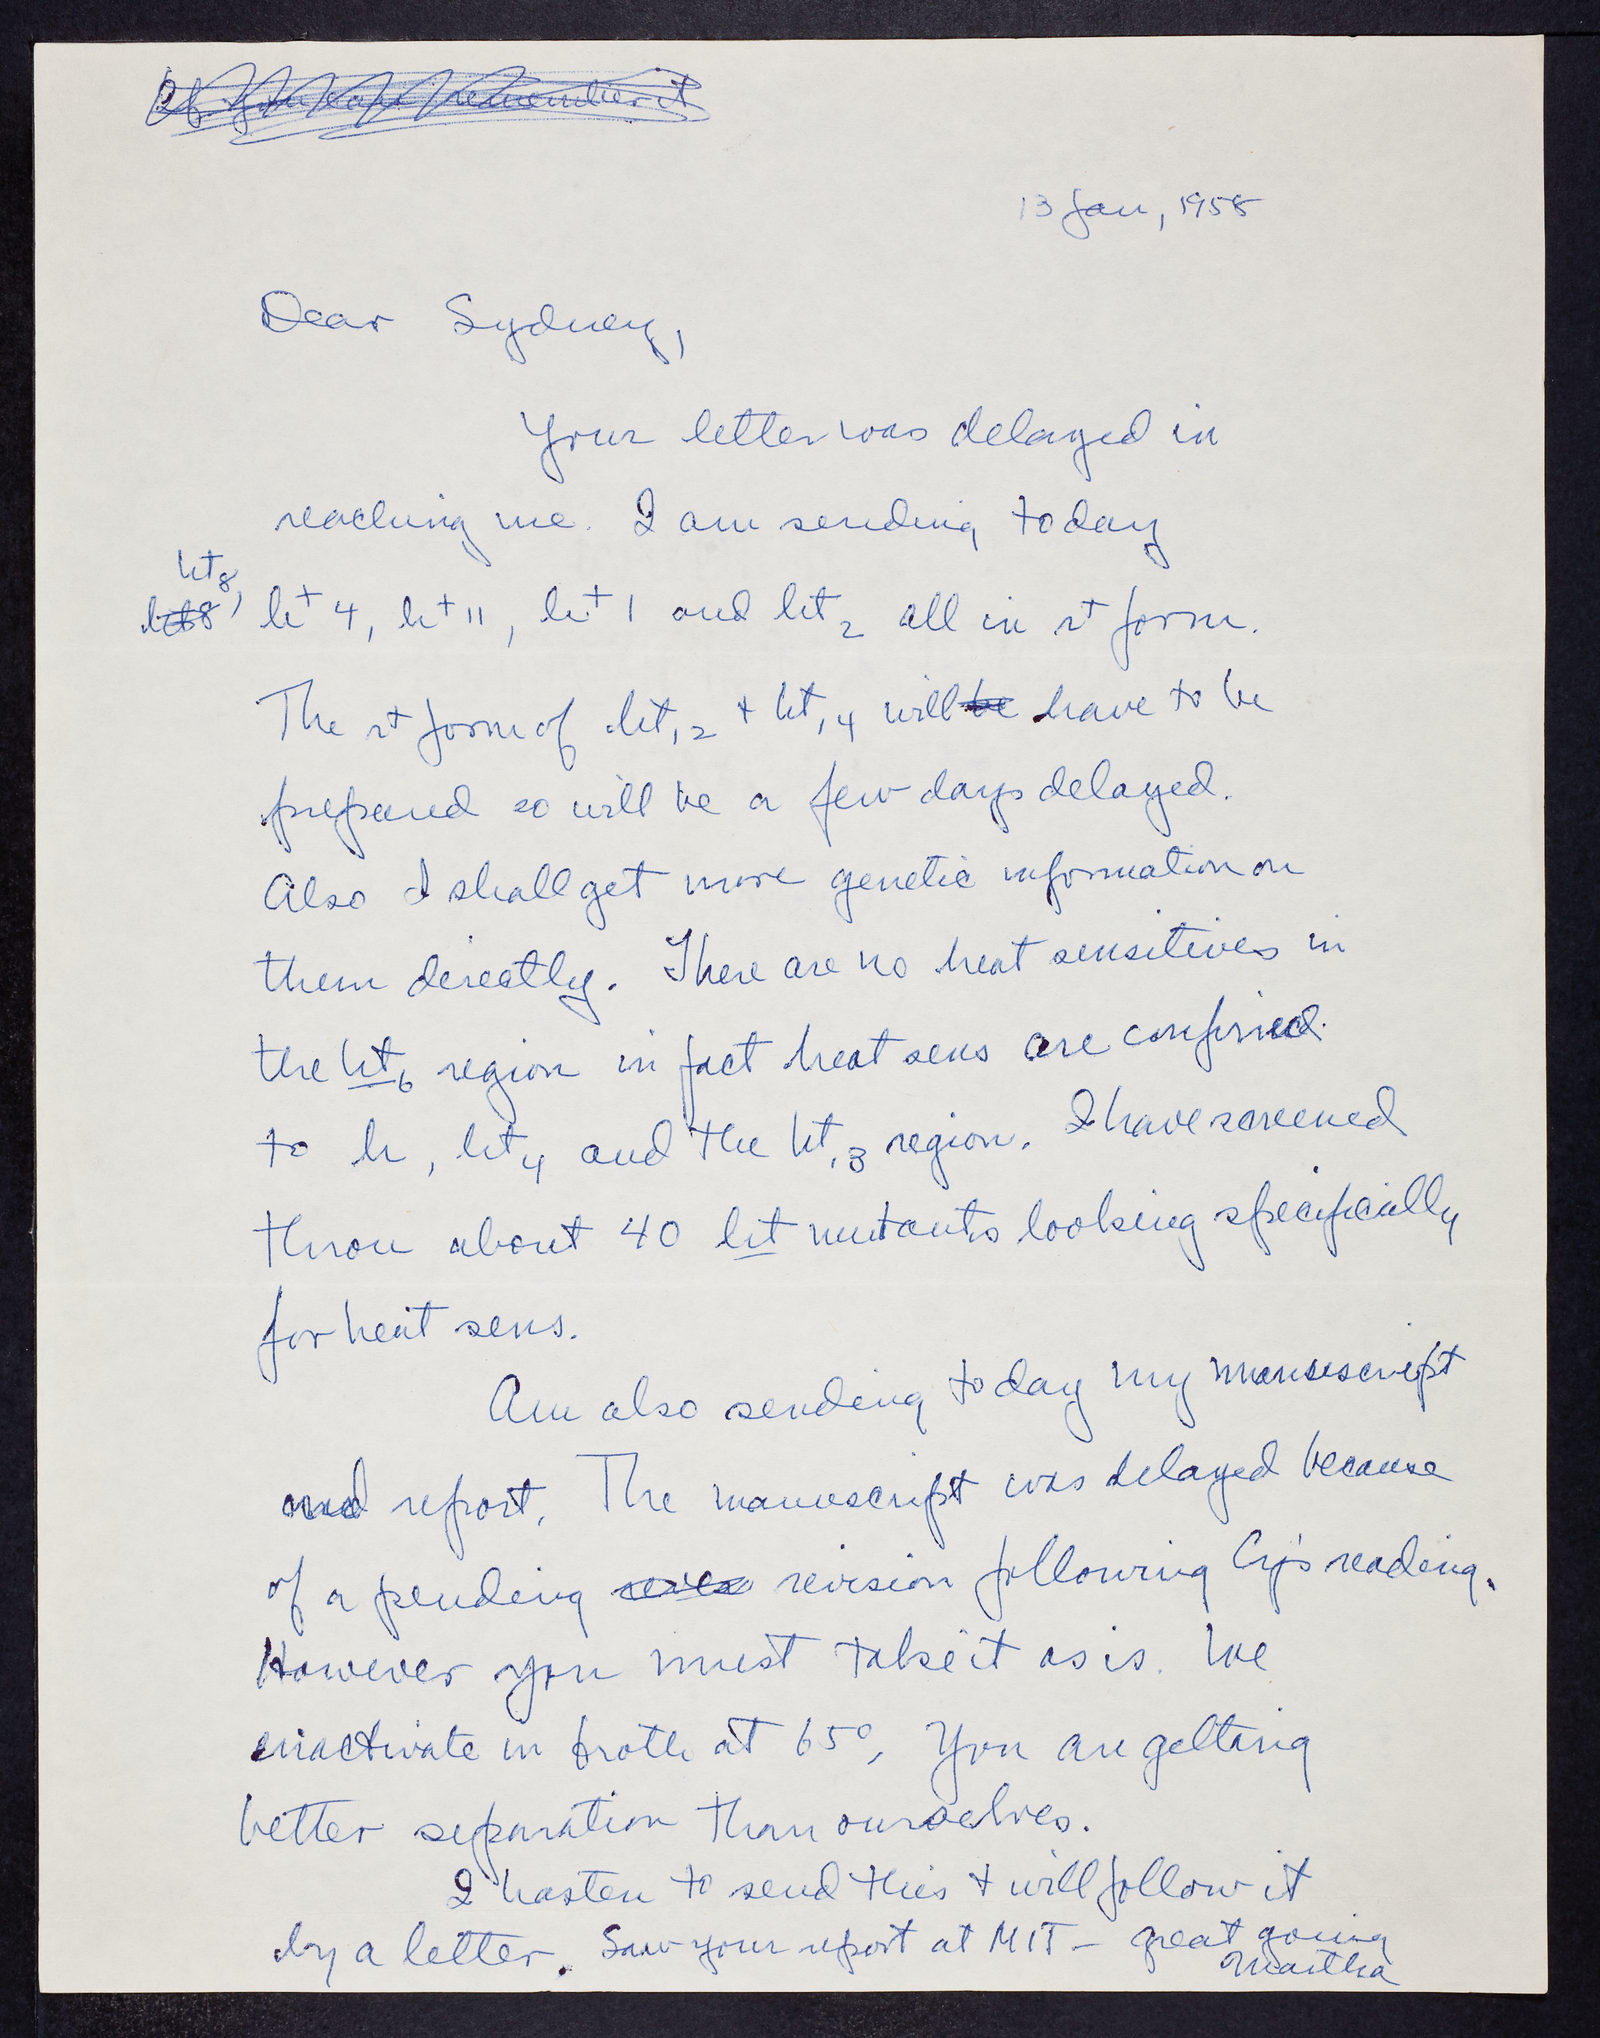 If you can remember it
13 Jan, 1958
Dear Sydney,
Your letter was delayed in
reaching me. I am sending today
ht8,
ht8, h+ 4, h+ 11, h+ 1 and ht2 all in r+ form.
The r+ form of ht,2 + ht,4 will be have to be
prepared so will be a few days delayed.
Also I shall get more genetic information on
them directly. There are no heat sensitives in
the ht6 region in fact heat sens are confined
to h, ht4 and the ht,3 region. I have screened
throu about 40 ht mutants looking specifically
for heat sens.
Am also sending today my manuscript
and report. The manuscript was delayed because
of a pending revision following Cy's reading.
However you must take it as is. We
inactivate in broth at 65°, You are getting
better separation than ourselves.
I hasten to send this + will follow it
by a letter. Saw your report at MIT – great going
Martha